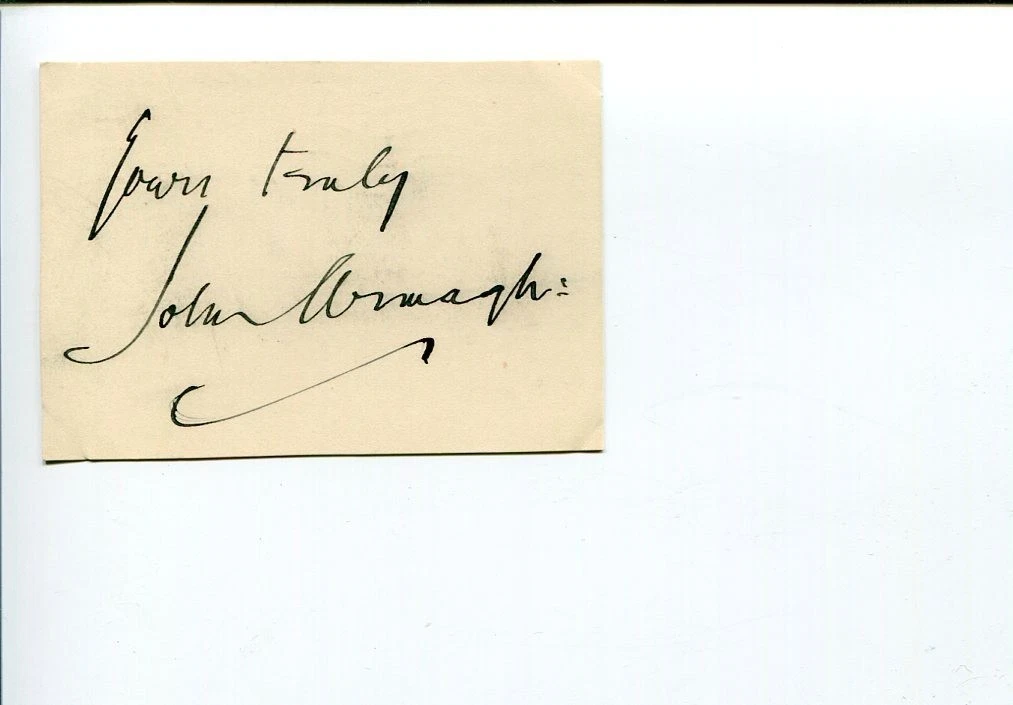 Yours truly
John Armagh: